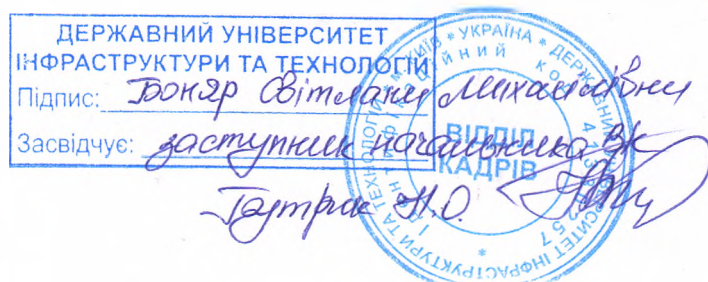 ДЕРЖАВНИЙ УНІВЕРСИТЕТ
ІНФРАСТРУКТУРИ ТА ТЕХНОЛОГІЙ
Підпис: Боняр Світлани Михайлівни
Засвідчує: заступник начальника ВК
Н.О.
ВІДДІЛ
КАДРІВ
* УКРАЇНА * ДЕРЖАВНИЙ УНІВЕРСИТЕТ ІНФРАСТРУКТУРИ ТА ТЕХНОЛОГІЙ * м. КИЇВ